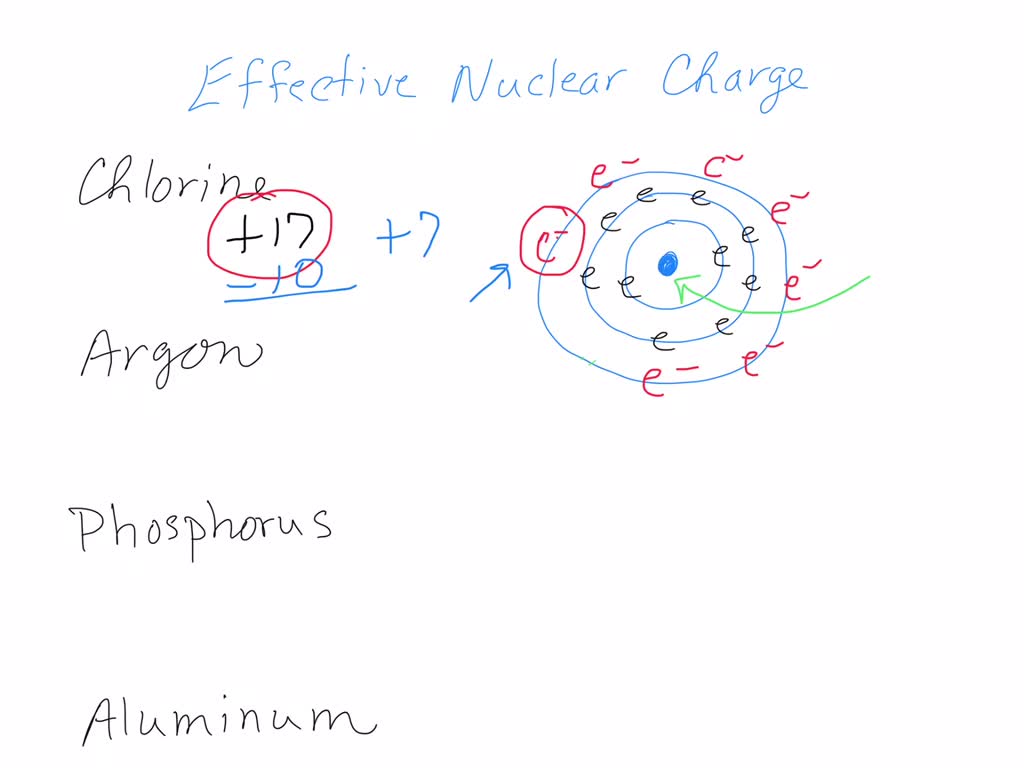 Effective Nuclear Charge
Chlorine
+17
+7
-10
e-
e-
e-
e-
e-
e-
e-
e
e
e
e
e
e
e
e
e
e
Argon
Phosphorus
Aluminum